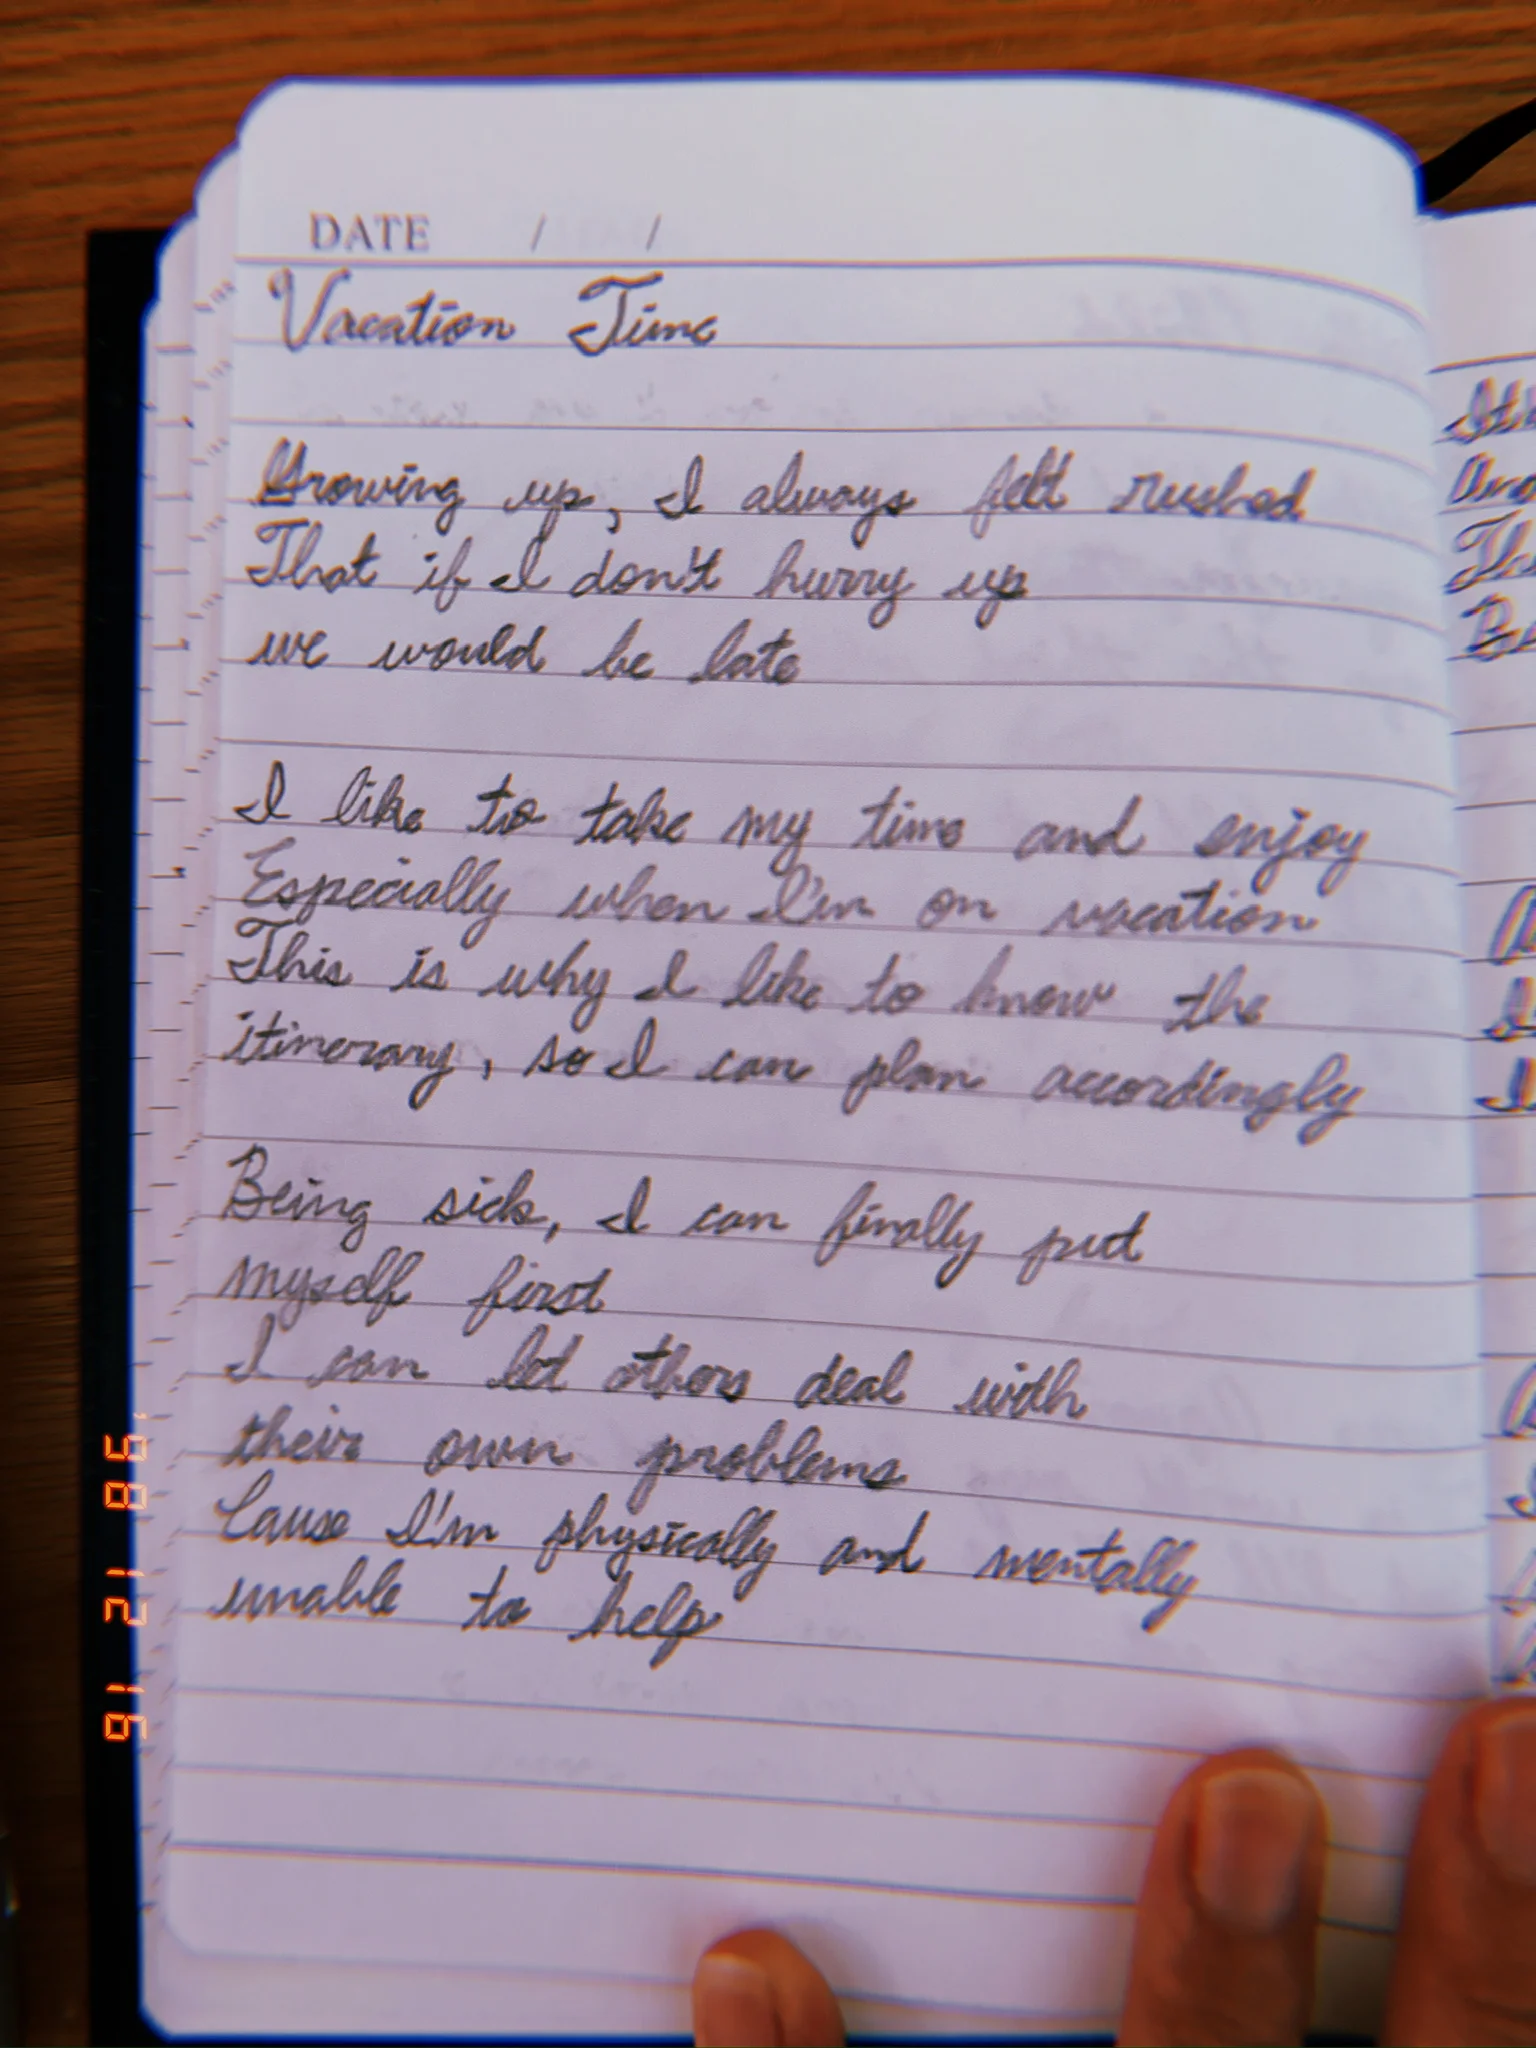 DATE / /
Vacation Time
Growing up, I always felt rushed
That if I don't hurry up
we would be late
I like to take my time and enjoy
Especially when I'm on vacation
This is why I like to know the
itinerary, so I can plan accordingly
Being sick, I can finally put
myself first
I can let others deal with
their own problems
Cause I'm physically and mentally
unable to help
91 12 '86